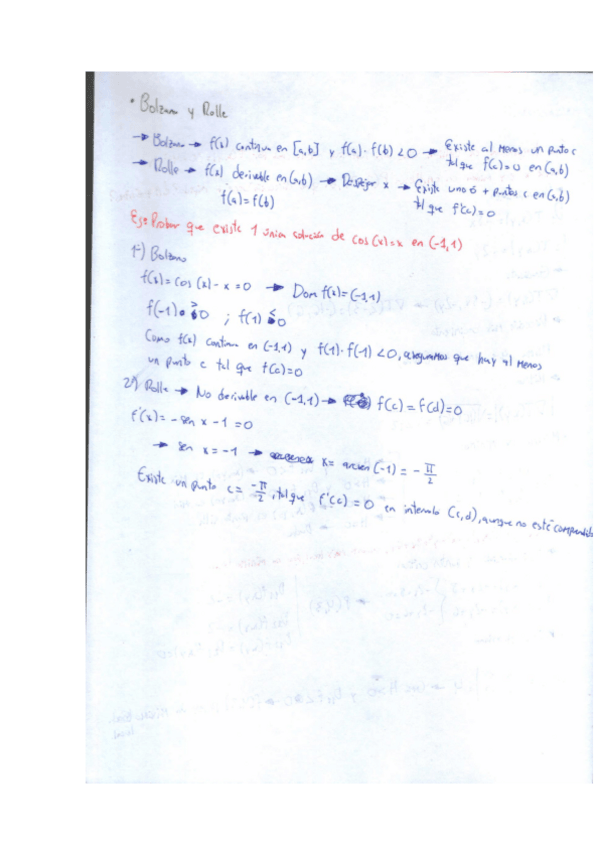 • Bolzano y Rolle
→ Bolzano → f(x) continua en [a,b] y f(a)·f(b) < 0 → Existe al menos un punto c
tal que f(c)=0 en (a,b)
→ Rolle → f(x) derivable en (a,b) → Despejar x → Existe uno ó + puntos c en (a,b)
f(a)=f(b)
tal que f'(c)=0
Ej: Probar que existe 1 única solución de cos(x)=x en (-1,1)
1º) Bolzano
f(x) = cos(x) - x = 0 → Dom f(x) = (-1,1)
f(-1) > 0 ; f(1) < 0
Como f(x) continua en (-1,1) y f(1)·f(-1) < 0, aseguramos que hay al menos
un punto c tal que f(c)=0
2º) Rolle → No derivable en (-1,1) → f(c) = f(d) = 0
f'(x) = - sen x - 1 = 0
→ sen x = -1 → x = arcsen (-1) = - π/2
Existe un punto c = -π/2, tal que f'(c) = 0 en intervalo (c,d), aunque no esté